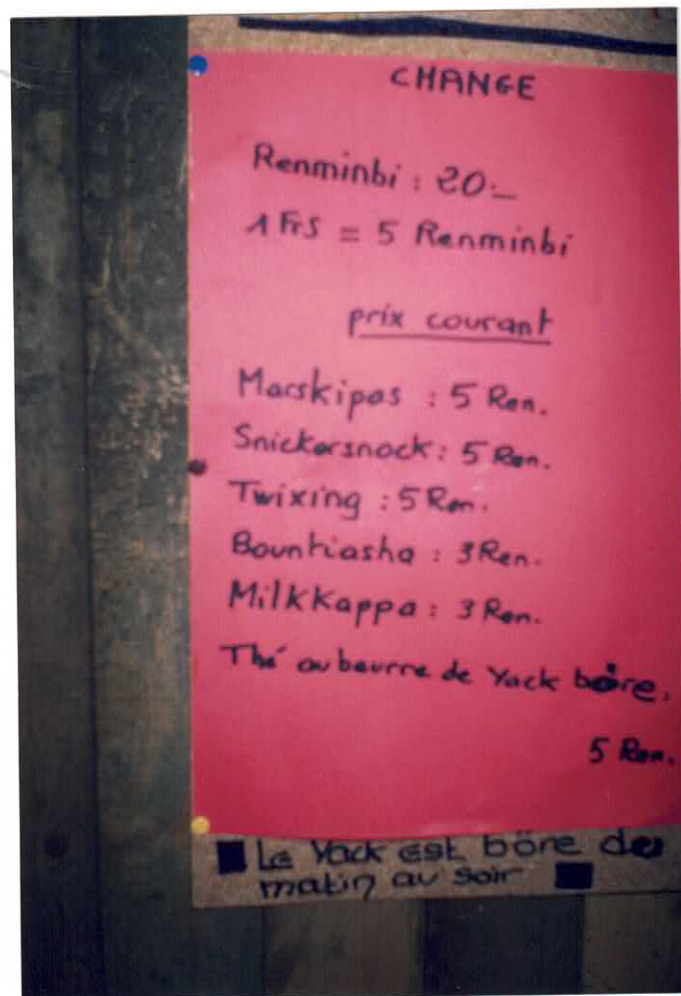 CHANGE
Renminbi : 20.-
1 Frs = 5 Renminbi
prix courant
Marskipos : 5 Ren.
Snickersnock : 5 Ren.
Twixing : 5 Ren.
Bountiasha : 3 Ren.
MilkKappa : 3 Ren.
Thé au beurre de Yack böre.
5 Ren.
Le Yack est böre du
matin au soir